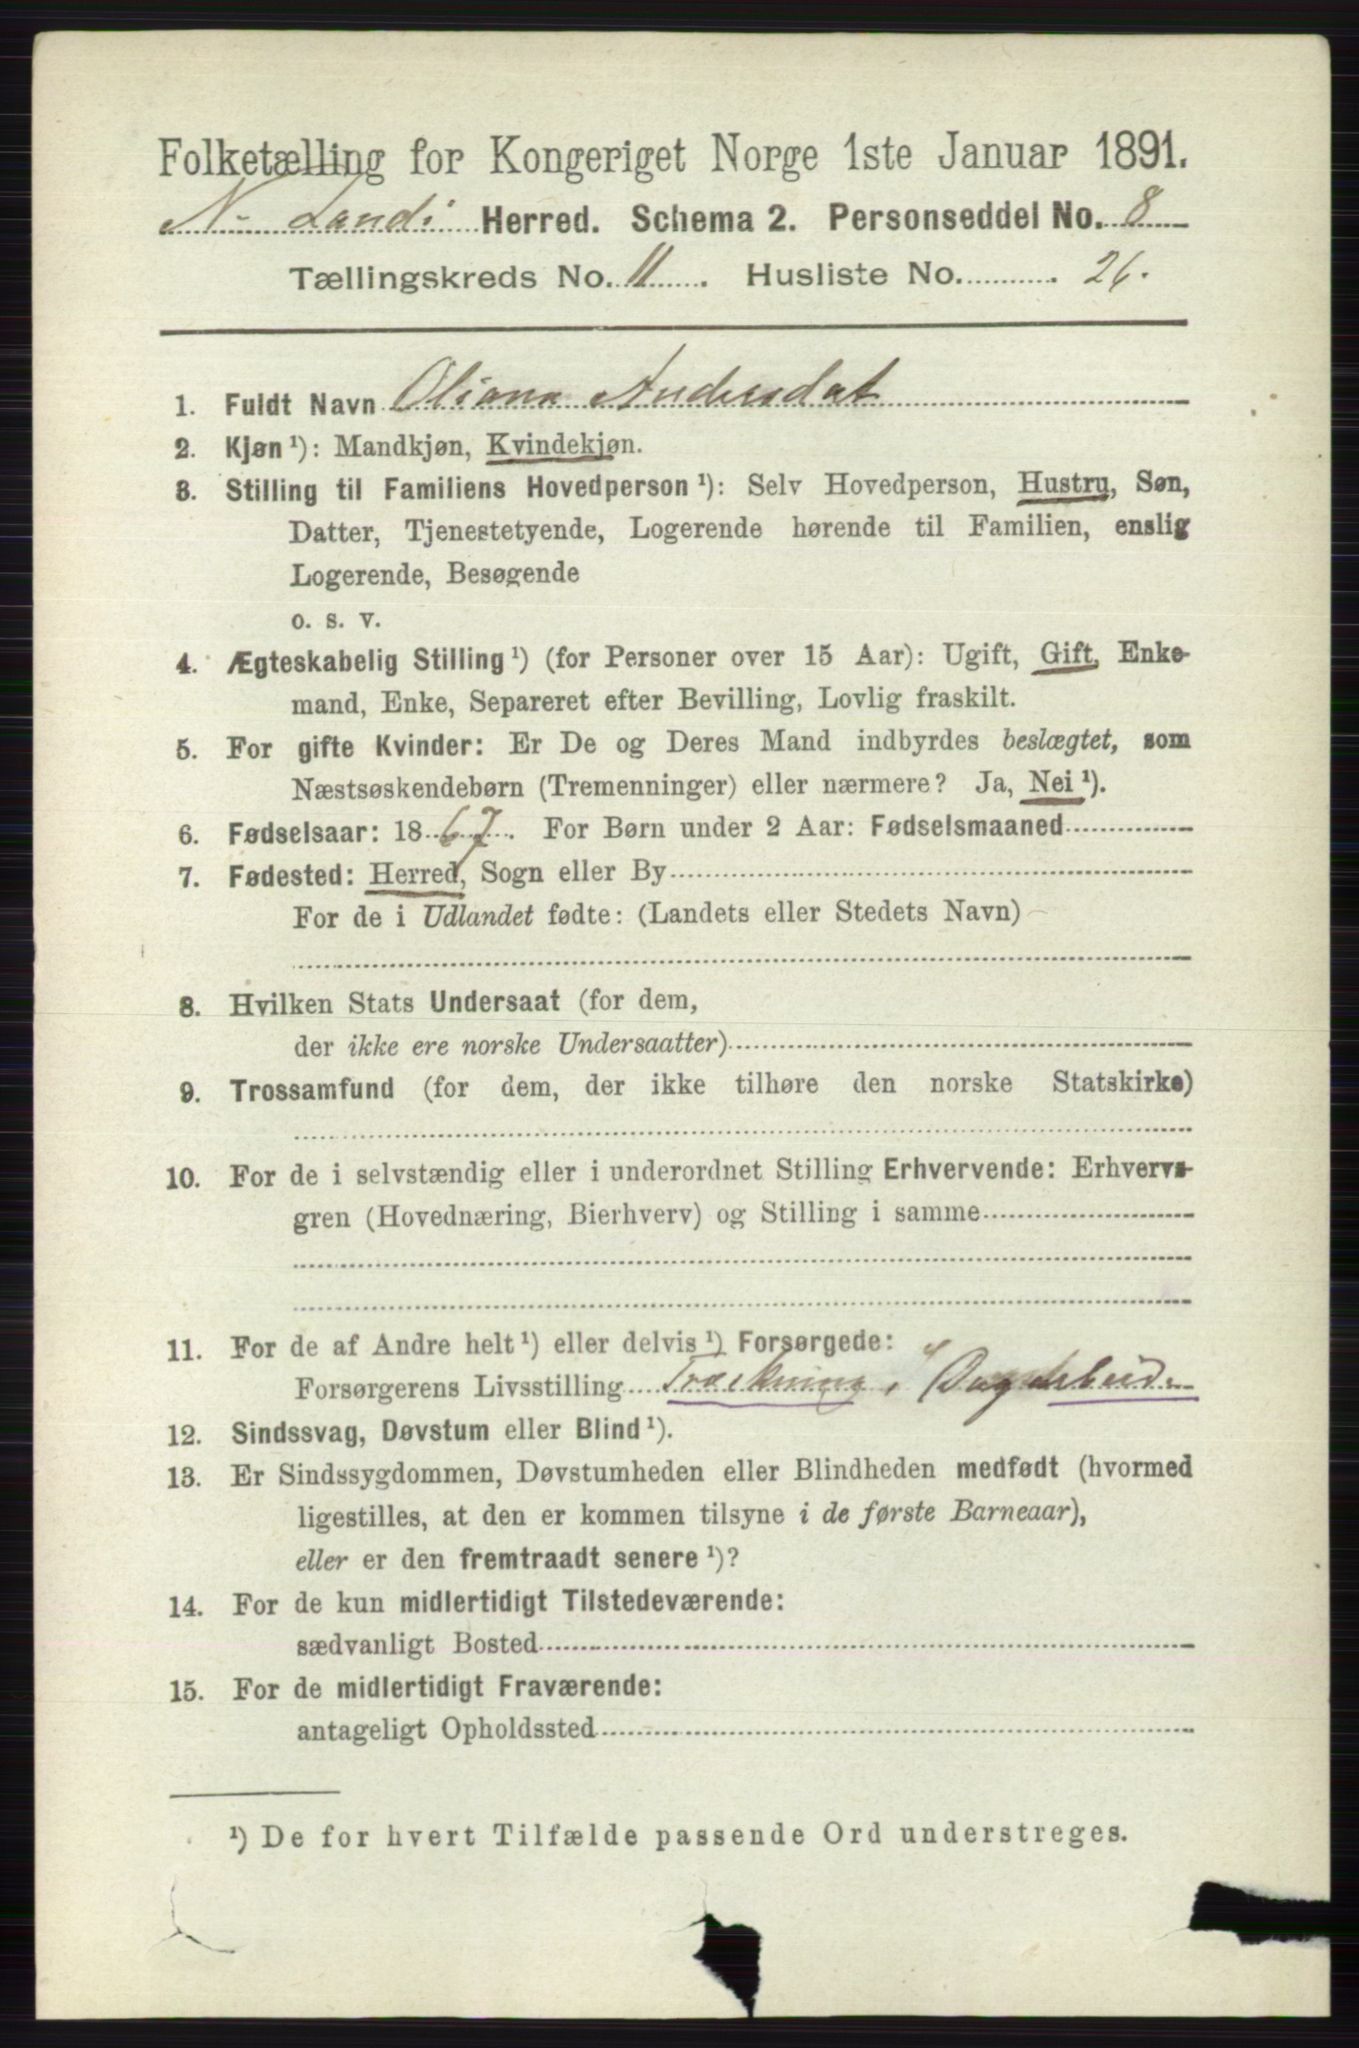 Folketælling for Kongeriget Norge 1ste Januar 1891.
N. Landi Herred. Schema 2. Personseddel No. 8
Tællingskreds No. 11. Husliste No. 26.
1. Fuldt Navn Oliana Andersdat
2. Kjøn ¹): Mandkjøn, Kvindekjøn.
3. Stilling til Familiens Hovedperson ¹): Selv Hovedperson, Hustru, Søn,
Datter, Tjenestetyende, Logerende hørende til Familien, enslig
Logerende, Besøgende
o. s. v.
4. Ægteskabelig Stilling ¹) (for Personer over 15 Aar): Ugift, Gift, Enke-
mand, Enke, Separeret efter Bevilling, Lovlig fraskilt.
5. For gifte Kvinder: Er De og Deres Mand indbyrdes beslægtet, som
Næstsøskendebørn (Tremenninger) eller nærmere? Ja, Nei ¹).
6. Fødselsaar: 1867. For Børn under 2 Aar: Fødselsmaaned
7. Fødested: Herred, Sogn eller By
For de i Udlandet fødte: (Landets eller Stedets Navn)
8. Hvilken Stats Undersaat (for dem,
der ikke ere norske Undersaatter)
9. Trossamfund (for dem, der ikke tilhøre den norske Statskirke)
10. For de i selvstændig eller i underordnet Stilling Erhvervende: Erhvervs-
gren (Hovednæring, Bierhverv) og Stilling i samme
11. For de af Andre helt ¹) eller delvis ¹) Forsørgede:
Forsørgerens Livsstilling
12. Sindssvag, Døvstum eller Blind ¹).
13. Er Sindssygdommen, Døvstumheden eller Blindheden medfødt (hvormed
ligestilles, at den er kommen tilsyne i de første Barneaar),
eller er den fremtraadt senere ¹)?
14. For de kun midlertidigt Tilstedeværende:
sædvanligt Bosted
15. For de midlertidigt Fraværende:
antageligt Opholdssted
¹) De for hvert Tilfælde passende Ord understreges.